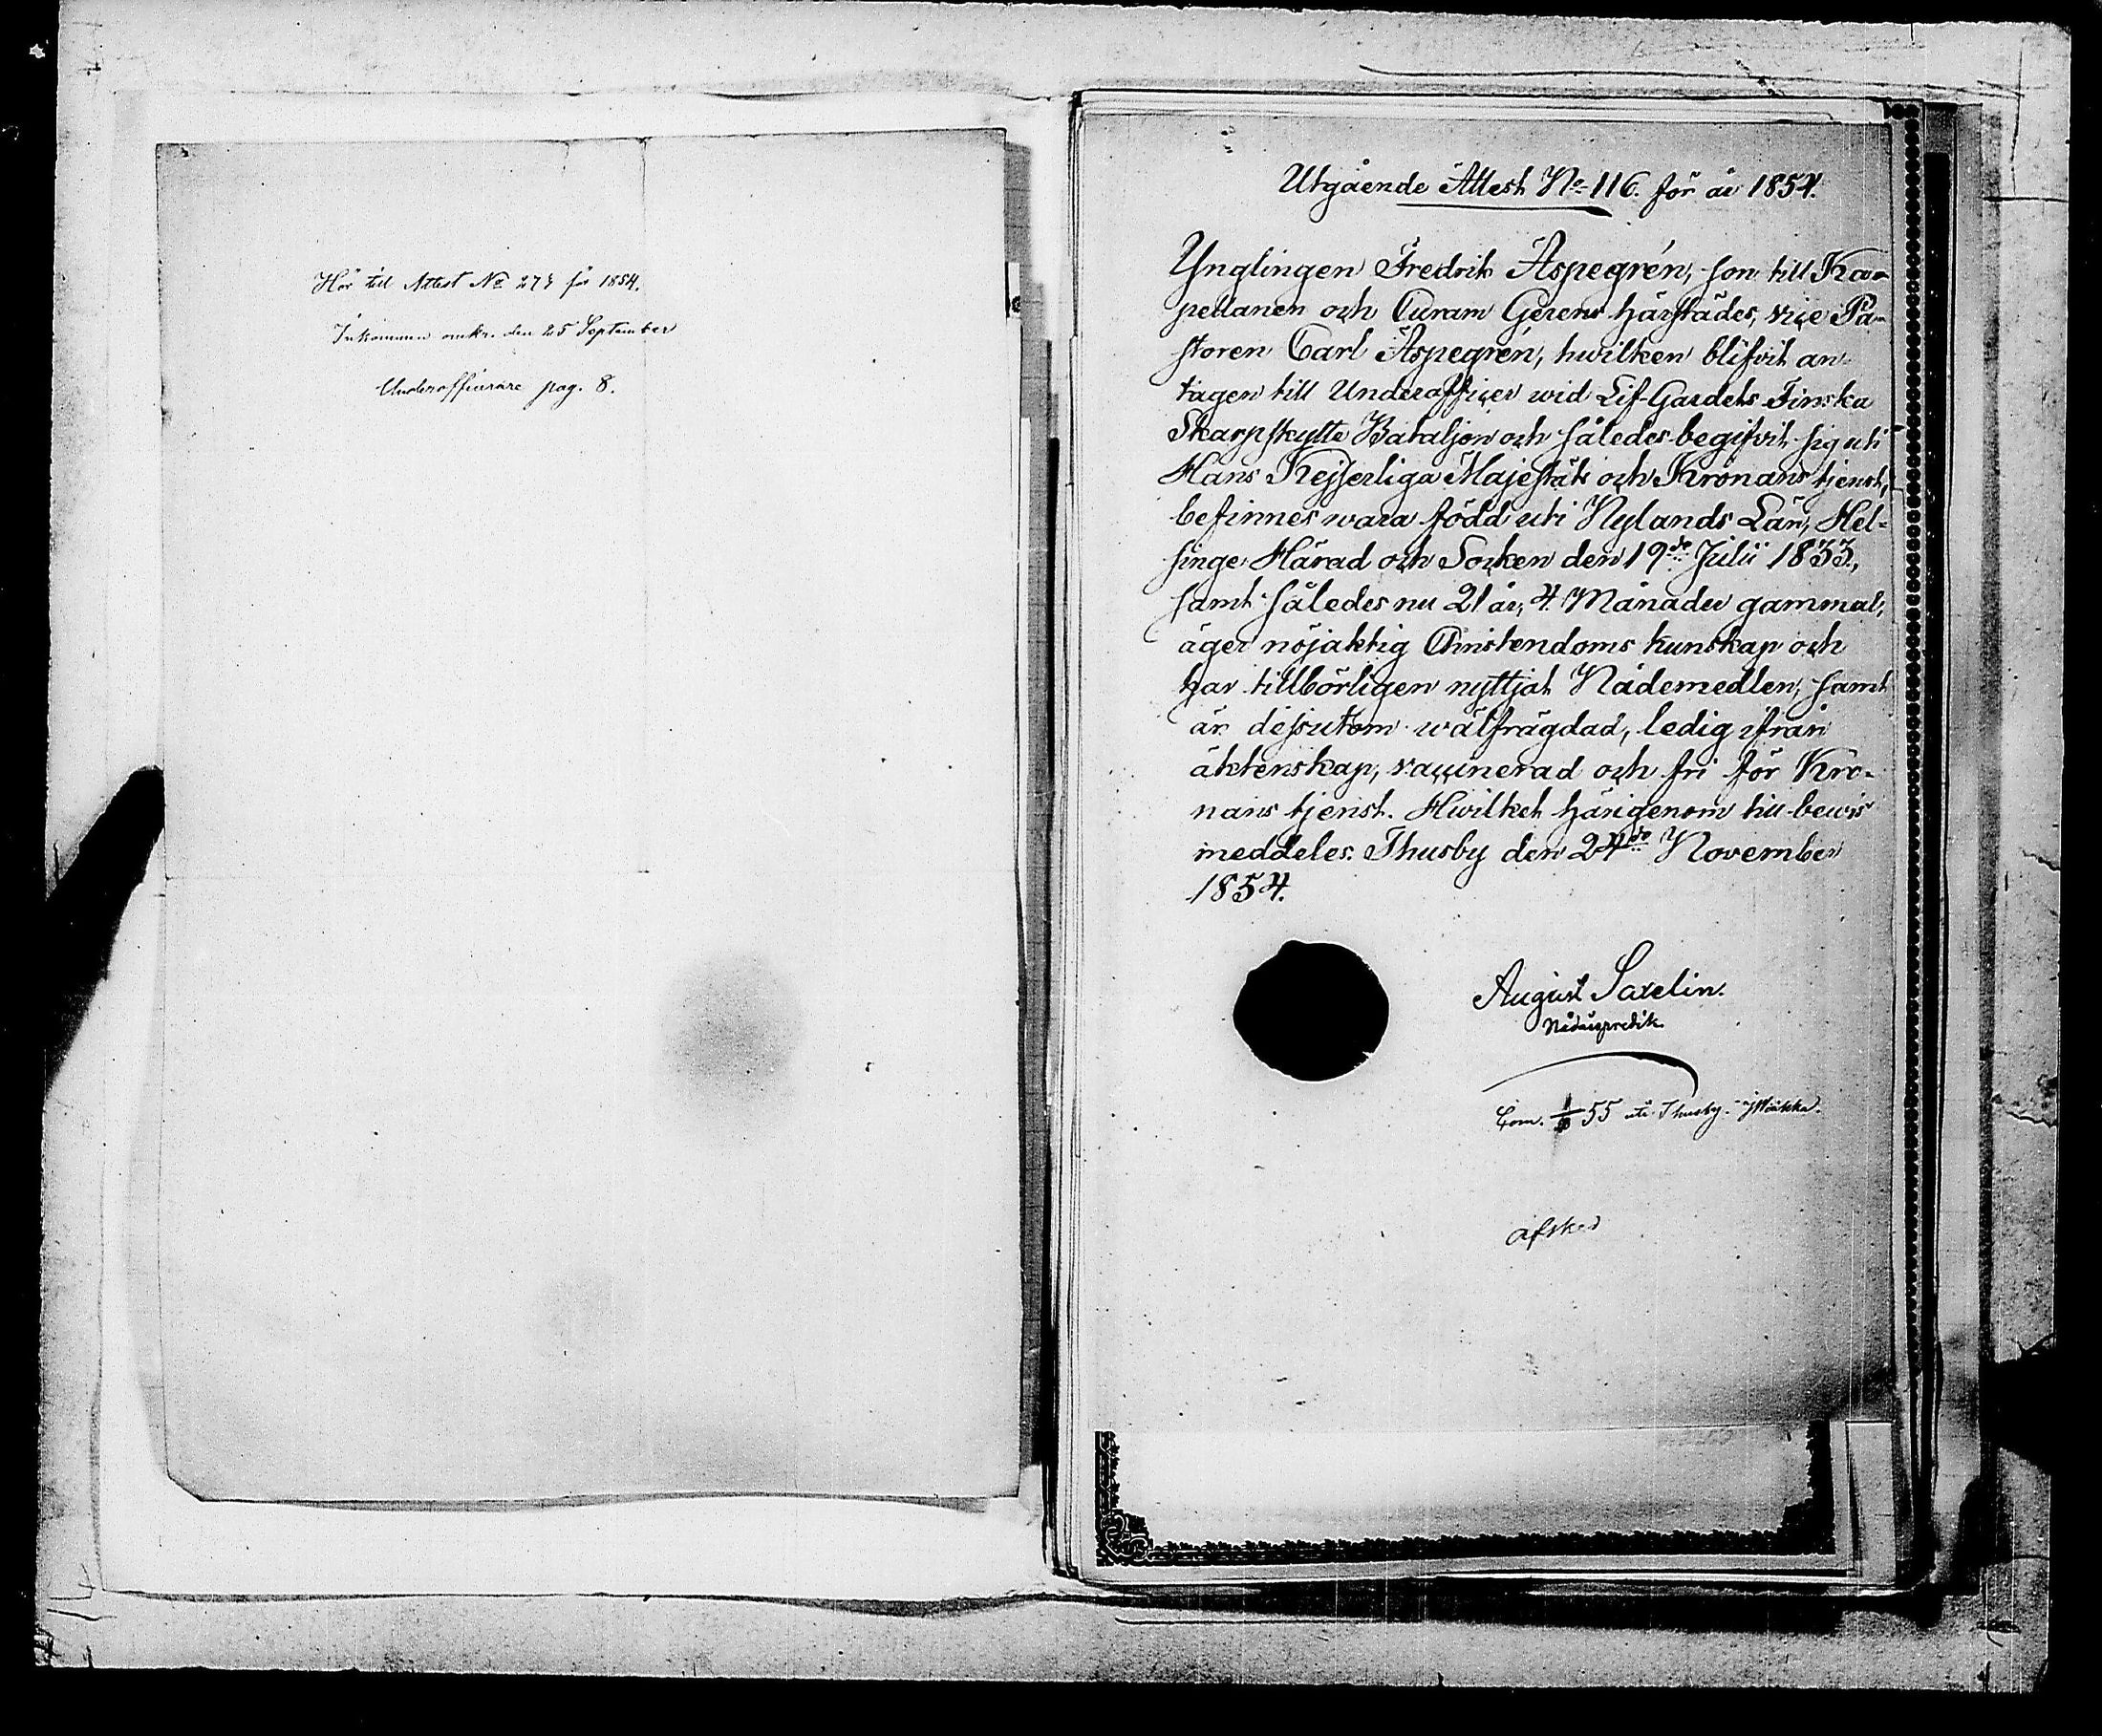 Hör till Attest No 273 för 1854.
Inkommen omkr. den 25 September
Underofficerare pag. 8.
Utgående Attest No 116. för år 1854.
Ynglingen Fredrik Aspegrén, son till Ka-
pellanen och Curam Gerens härstädes, vice Pa-
storen Carl Aspegrén, hwilken blifvit an-
tagen till Underofficer wid Lif-Gardets Finska
Skarpskytte Bataljon och således begifvit sig uti
Hans Kejserliga Majestäts och Kronans tjenst,
befinnes wara född uti Nylands Län, Hel-
singe Härad och Socken den 19de Julii 1833.,
samt således nu 21 år, 4 Månader gammal,
äger nöjaktig Christendoms kunskap och
har tillbörligen nyttjat Nådemedlen, samt
är dessutom wälfrägdad, ledig ifrån
äktenskap, vaccinerad och fri för Kro-
nans tjenst. Hwilket härigenom till bewis
meddeles. Thusby den 24de November
1854.
August Saxelin.
Nådårspredik.
Com. 55 uti Thusby.
afsked